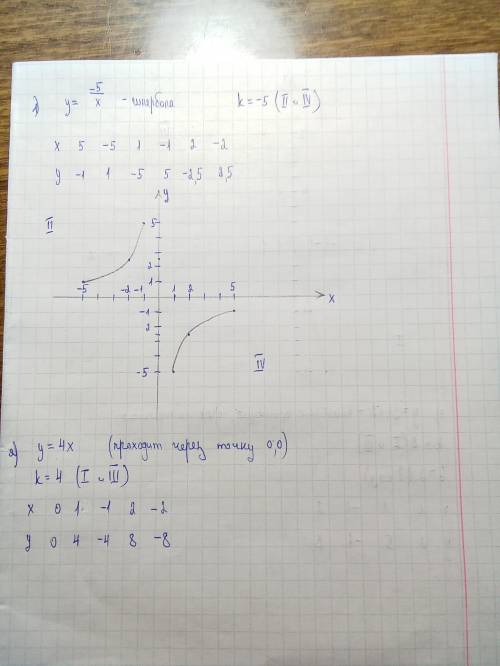 y = -5/x - гипербола k = -5 (II и IV)
x 5 -5 1 -1 2 -2
y -1 1 -5 5 -2,5 2,5
y
II
5
2
1
-5 -2 -1 1 2 5 x
-1
2
-5
IV
y = 4x (проходит через точку 0,0)
k = 4 (I и III)
x 0 1 -1 2 -2
y 0 4 -4 8 -8